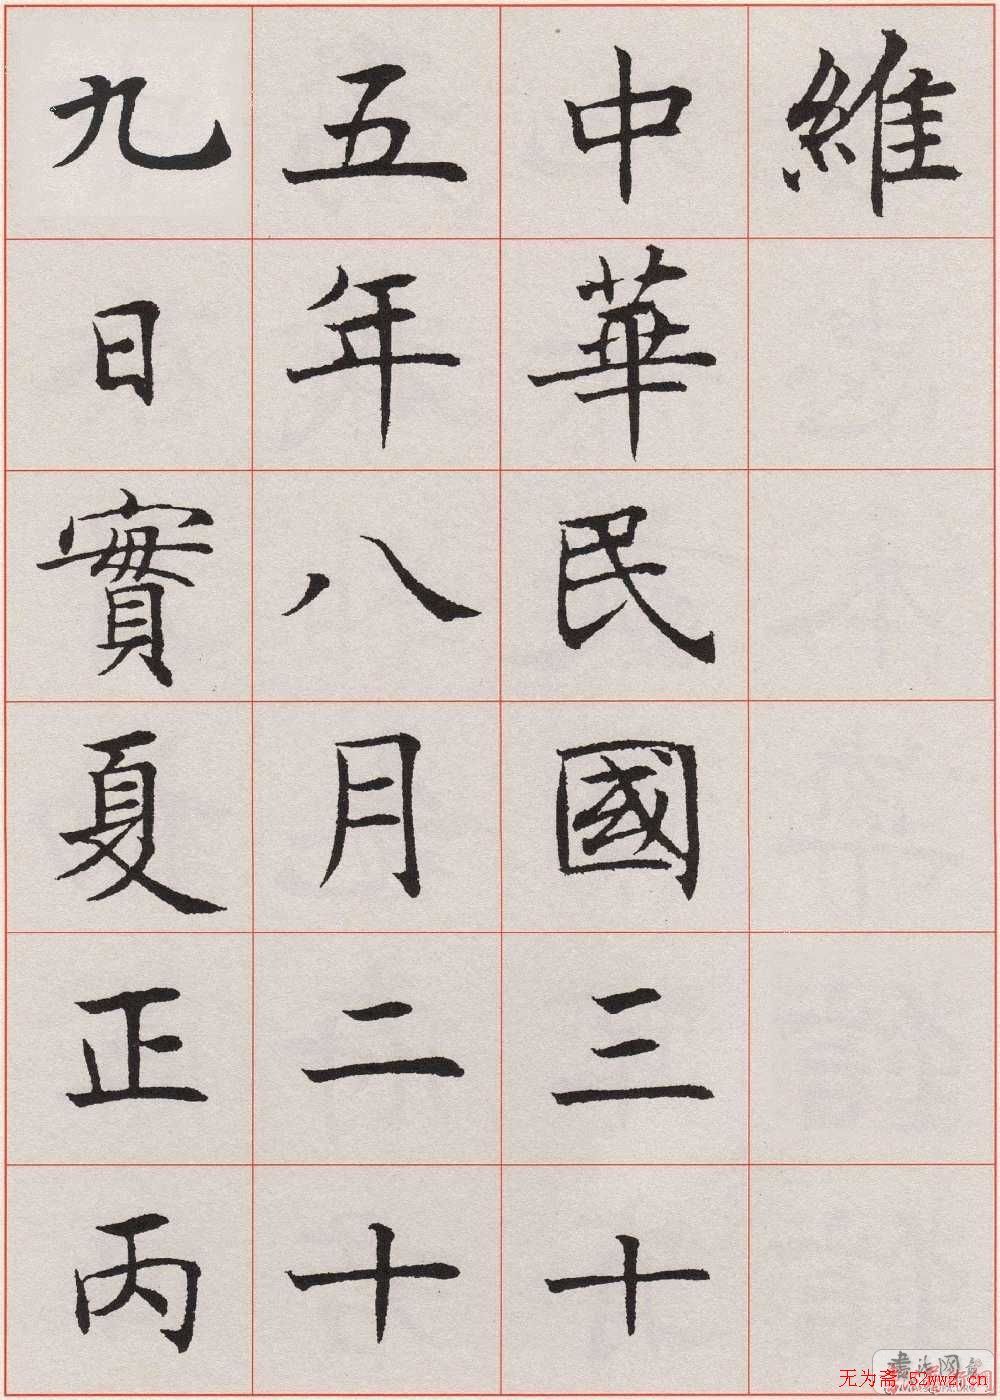 維
中華民國三十
五年八月二十
九日實夏正丙
书法网
无为斋 52wwz.cn